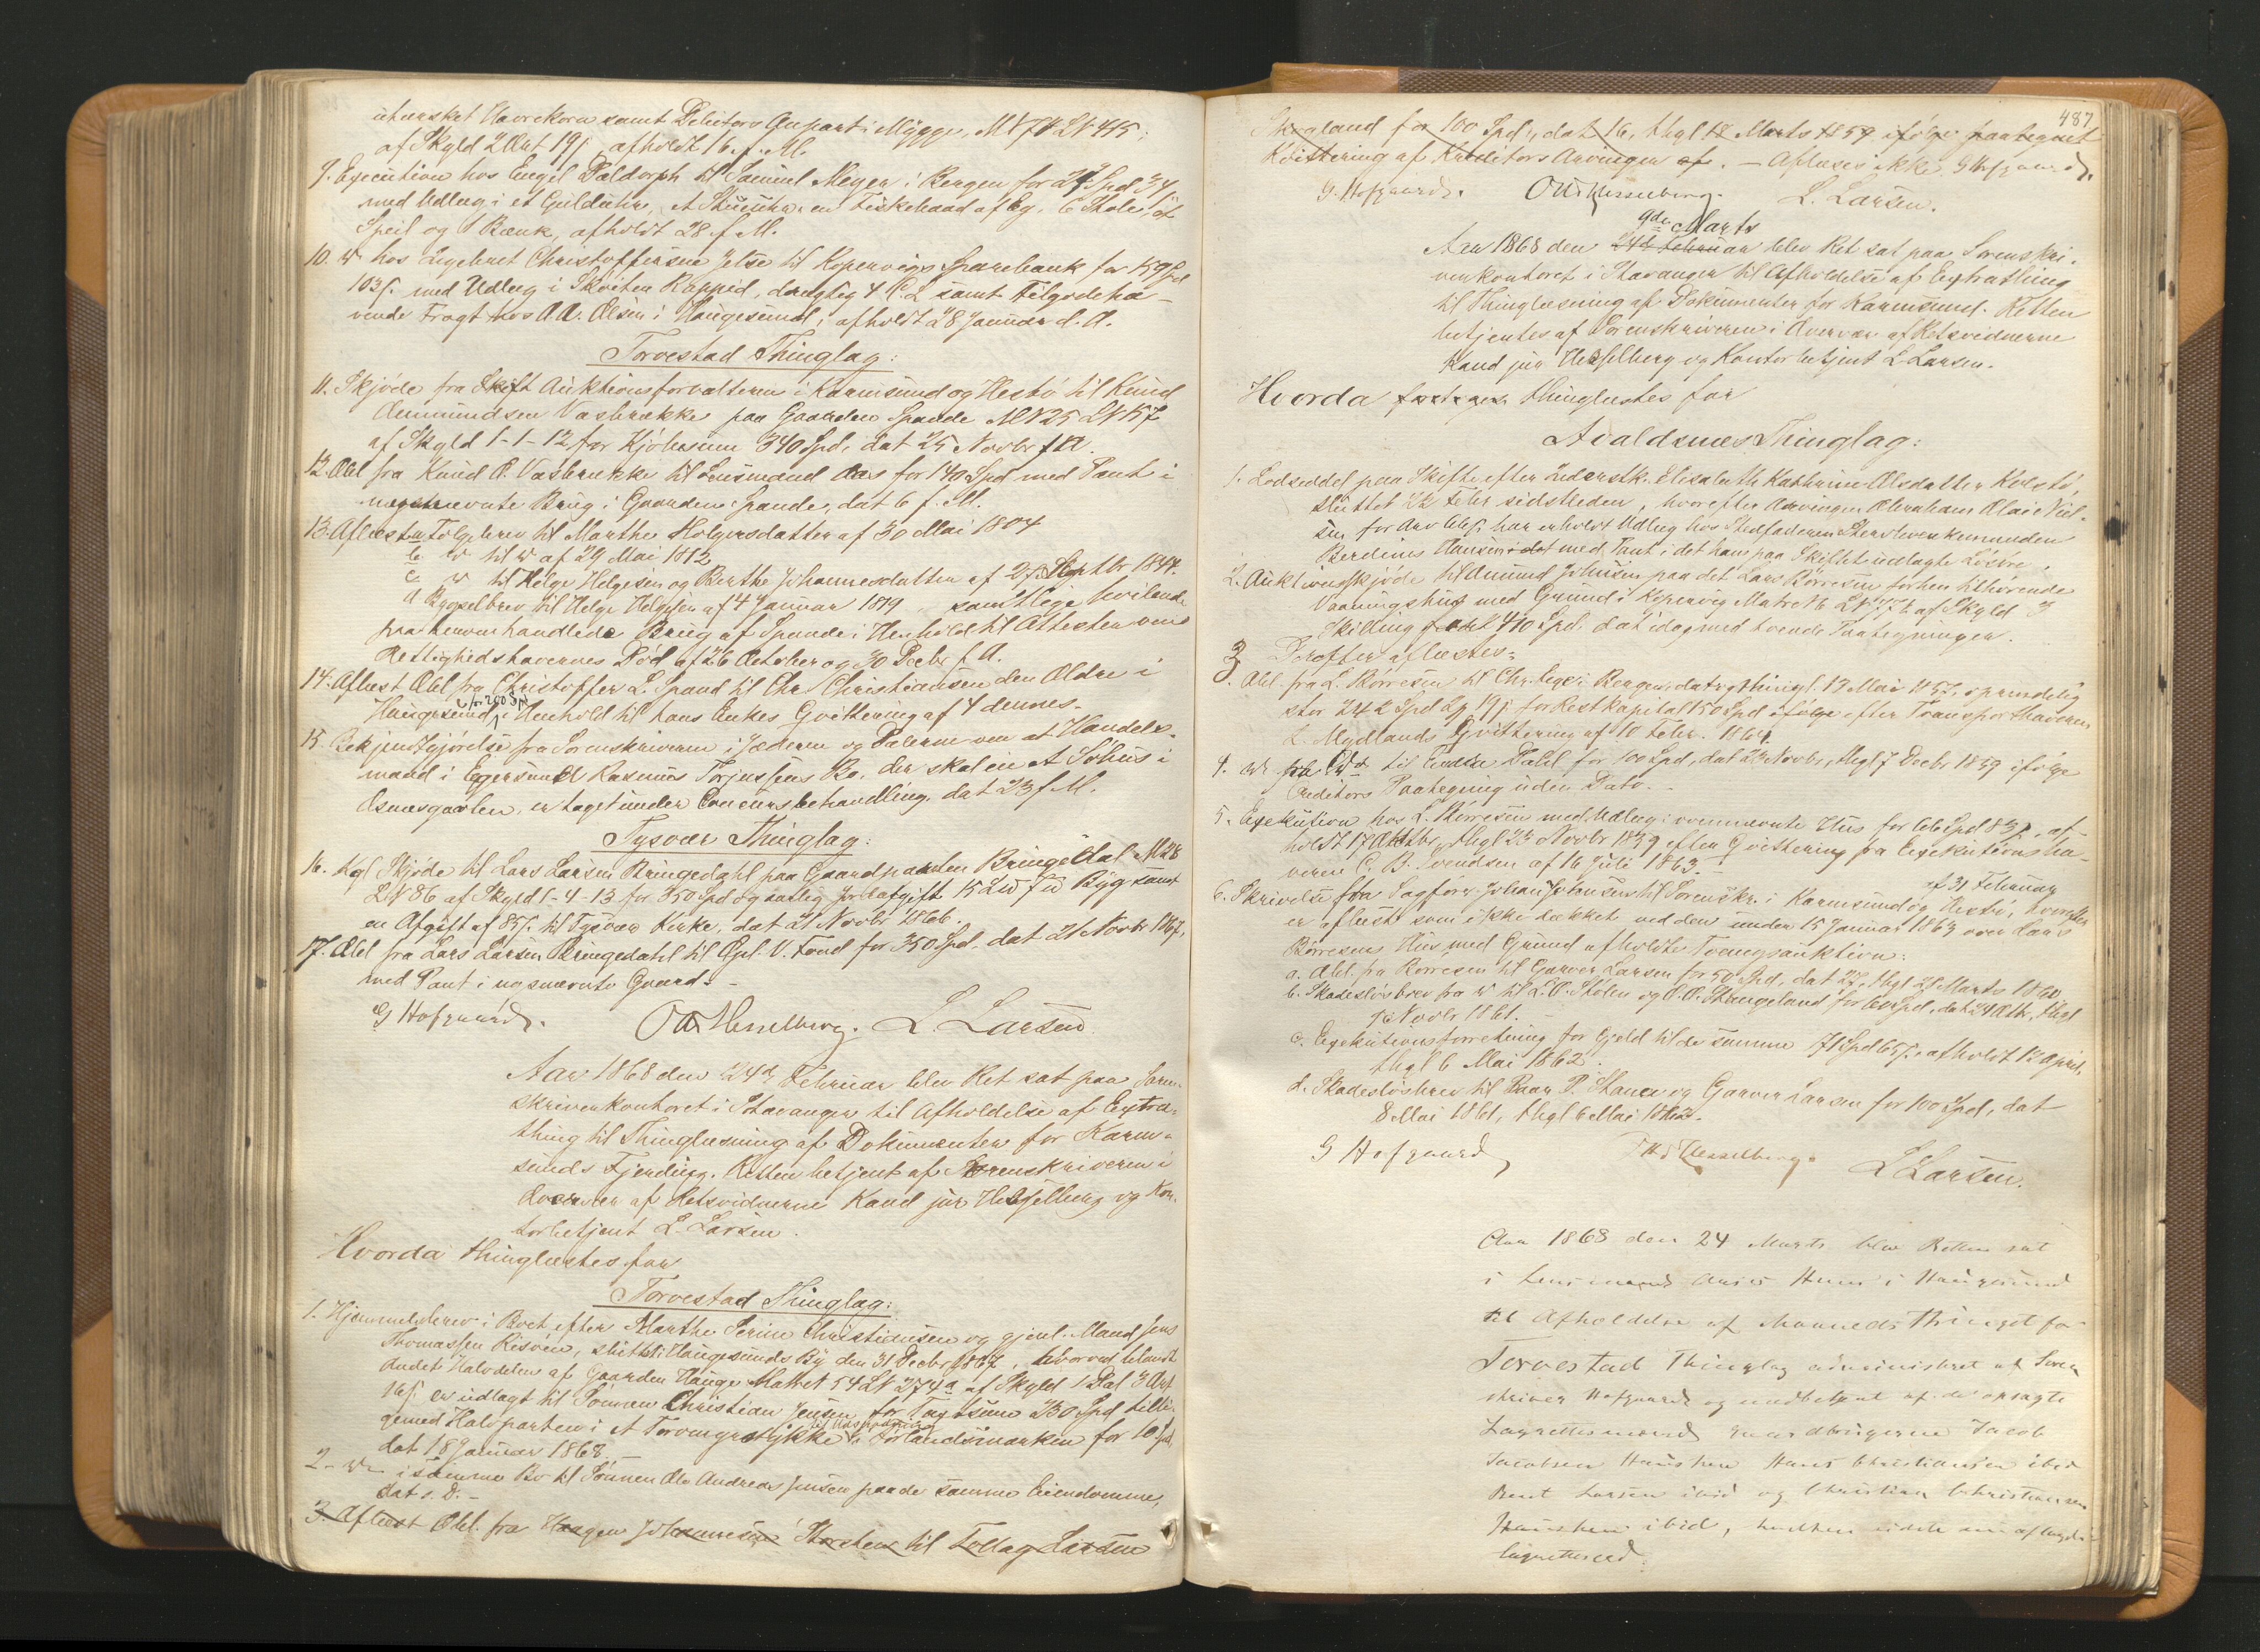 utærsket Havrekorn samt Debitors Gupart i Mygge, M N 74 LN 415;
af Skyld 2 Ort 19 ß, afholdt 16. f. M.
9. Execution hos Engel Daldorph til Samuel Meyer i Bergen for 24 Spd 34 ß
med Udlæg i et Gulduhr, et Stueuhr, en Fiskebaad af Eg, 6 Stole, et
Speil og 1 Bænk, afholdt 28 f. M.
10. hos Ingebret Christoffersen Jelse til Kopervigs Sparebank for 159 Spd
103 ß. med Udlæg i Skøiten Rappid, drægtig 4 C. L. samt tilgodeha-
vende Fragt hos A. A. Olsen i Haugesund, afholdt 28 Januar d. A.
Torvestad Thinglag:
11. Skjøde fra Auktionsforvalteren i Karmsund og Hesbø til Knud
Ommundsen Vasbrække paa Gaarden Spande M N 25 LN 157
af Skyld 1-1-12 for Kjøbesum 340 Spd, dat 25 Novbr f. A.
12. Obl fra Knud O. Vasbrække til Lensmand Aas for 140 Spd med Pant i
nysnævnte Brug i Gaarden Spande, dat 6 f. M.
13. Aflæst a, Følgebrev til Marthe Holgersdatter af 30 Mai 1804
b til af 29 Mai 1812
c til Helge Helgesen og Berthe Johannesdatter af 27 Septbr 1844.
d Bygselbrev til Helge Helgesen af 4 Januar 1819 samtlige hvilende
paa henomhandlede Brug af Spande i Henhold til Attester om
Rettighedshavernes Død af 26 October og 30 Decbr f. A.
14. Aflæst Obl fra Christoffer L. Spand til Chr. Christiansen den Ældre i
Haugesund, for 200 Spd i Henhold til hans Enkes Qvittering af 4 dennes.
15. Bekjendtgjørelse fra Sorenskriveren i Jæderen og Dalerne om at Handels-
mand i Egersund Rasmus Torjussens Bo, der skal eie et Søhus i
Osnesgavlen, er taget under Concursbehandling, dat 23 f. M.
Tysvær Thinglag:
16. Kgl Skjøde til Lars Larsen Bringedahl paa Gaardparten Bringedal M 28
LN 86 af Skyld 1-4-13 for 350 Spd og aarlig Jordafgift 15 Byg samt
en Afgift af 85 ß. til Tysvær Kirke, dat 21 Novbr 1866.
17. Obl fra Lars Larsen Bringedahl til Opl. V. Fond for 350 Spd. dat 21 Novbr 1867,
med Pant i nysnævnte Gaard.
G Hofgaard. Hesselberg. L. Larsen.
Aar 1868 den 24de Februar blev Ret sat paa Soren-
skriverkontoret i Stavanger til Afholdelse af Extra-
thing til Thinglæsning af Dokumenter for Karm-
sunds Fjerding. Retten betjent af Sorenskriveren i
Overvær af Retsvidnerne Kand jur Hesselberg og Kon-
torbetjent L. Larsen.
Hvorda thinglæstes for
Torvestad Thinglag:
1. Hjemmelsbrev i Boet efter Marthe Serine Christiansen og gjenl. Mand Jens
Thomassen Risøen, sluttet i Haugesunds By den 31 Decbr 1867, hvorved blandt
Andet Halvdelen af Gaarden Hauge Matret 54 LN 274a af Skyld 1 Dal 3 Ort
16 ß er udlagt til Sønnen Christian Jensen for Taxtsum 230 Spd tilli-
gemed Halvparten i et Torvmyrstykke i Førlandsmarken for 10 Spd,
dat 18 Januar 1868.
2. i samme Bo til Sønnen Ole Andreas Jensen paa de samme Eiendomme,
dat s. D.
3. Aflæst Obl. fra Haagen Johannesen Storsten til Tollag Larsen
487
Skogland for 100 Spd, dat 16, thgl 18 Marts 1859 ifølge paategnet
Kvittering af Kreditors Arvinger af. - Aflæses ikke. G Hofgaard.
G. Hofgaard. Hesselberg. L. Larsen.
9de Marts
Aar 1868 den 24d Februar blev Ret sat paa Sorenskri-
verkontoret i Stavanger til Afholdelse af Extrathing
til Thinglæsning af Dokumenter for Karmsund. Retten
betjentes af Sorenskriveren i Overvær af Retsvidnerne
Kand jur Hesselberg og Kontorbetjent L Larsen.
Hvorda foretages thinglæstes for
Avaldsnes Thinglag:
1. Lodseddel paa Skifte efter Elisabeth Kathrine Olsdatter Kolstø,
sluttet 22 Febr sidstleden, hvorefter Arvingen Abraham Olai Niel-
sen for Arv har erholdt Udlæg hos Stedfaderen
Berdines Hansen i det med Pant i det ham paa Skiftet udlagte Løsøre.
2. Auktionsskjøde til Amund Johnsen paa det Lars Børresen forhen tilhørende
Vaaningshus med Grund i Kopervig Matr N 6 LN 77 b af Skyld 3
Skilling for 410 Spd. dat idag med tvende Paategninger.
Derefter aflæstes:
3. Obl. fra L. Børresen til Chr. i Bergen, dat og thingl. 13 Mai 1857, oprindelig
stor 242 Spd 2 # 19 ß for Restkapital 150 Spd ifølge efter Transporthaveren
L. Mydlands Qvittering af 10 Febr. 1864.
4. til Endre Dahl for 100 Spd, dat 23 Novbr, thgl 7 Decbr 1859 ifølge
Creditors Paategning uden Dato.
5. Exekution hos L. Børresen med Udlæg i ovennævnte Hus for 66 Spd 83 ß, af-
holdt 17 Oktbr, thgl 23 Novbr 1859 efter Qvittering fra Exekutionsha-
veren C. B. Svendsen af 16 Juli 1863.
6. Skrivelse fra Sagfører Johan Johnsen til Sorenskr. i Karmsund og Hesbø, af 31 Februar hvorefter
er aflæst som ikke dækket ved den under 15 Januar 1863 over Lars
Børresens Hus med Grund afholdte Tvangsauktion:
a. Obl. fra Børresen til Garver Larsen for 50 Spd, dat 27, thgl 28 Marts 1860
b. Skadesløsbrev fra til L. O. Stolen og O. O. Stangeland for Spd, dat 24 Oktbr, thgl
Novbr 1861.
c. Exekutionsforretning for Gjeld tilde samme 71 Spd 65 ß. afholdt 12 April,
thgl 6 Mai 1862.
d. Skadesløsbrev til Baar P. Stange og Garver Larsen for 100 Spd, dat
8 Mai 1861, thgl 6 Mai 1862.
G Hofgaard Hesselberg. L Larsen.
Aar 1868 den 24 Marts blev Retten sat
i Lensmand Aases Huus i Haugesund
til Afholdelse af Maanedsthinget for
Torvestad Thinglag administreret af Soren-
skriver Hofgaard og medbetjent af de opsagte
Laugrettesmænd Gaardbrugerne Jacob
Jacobsen Hauske Hans Christiansen ibid
Bent Larsen ibid og Christian Christiansen
ibid, hvilken sidste nu aflagde
Laugrettesed.